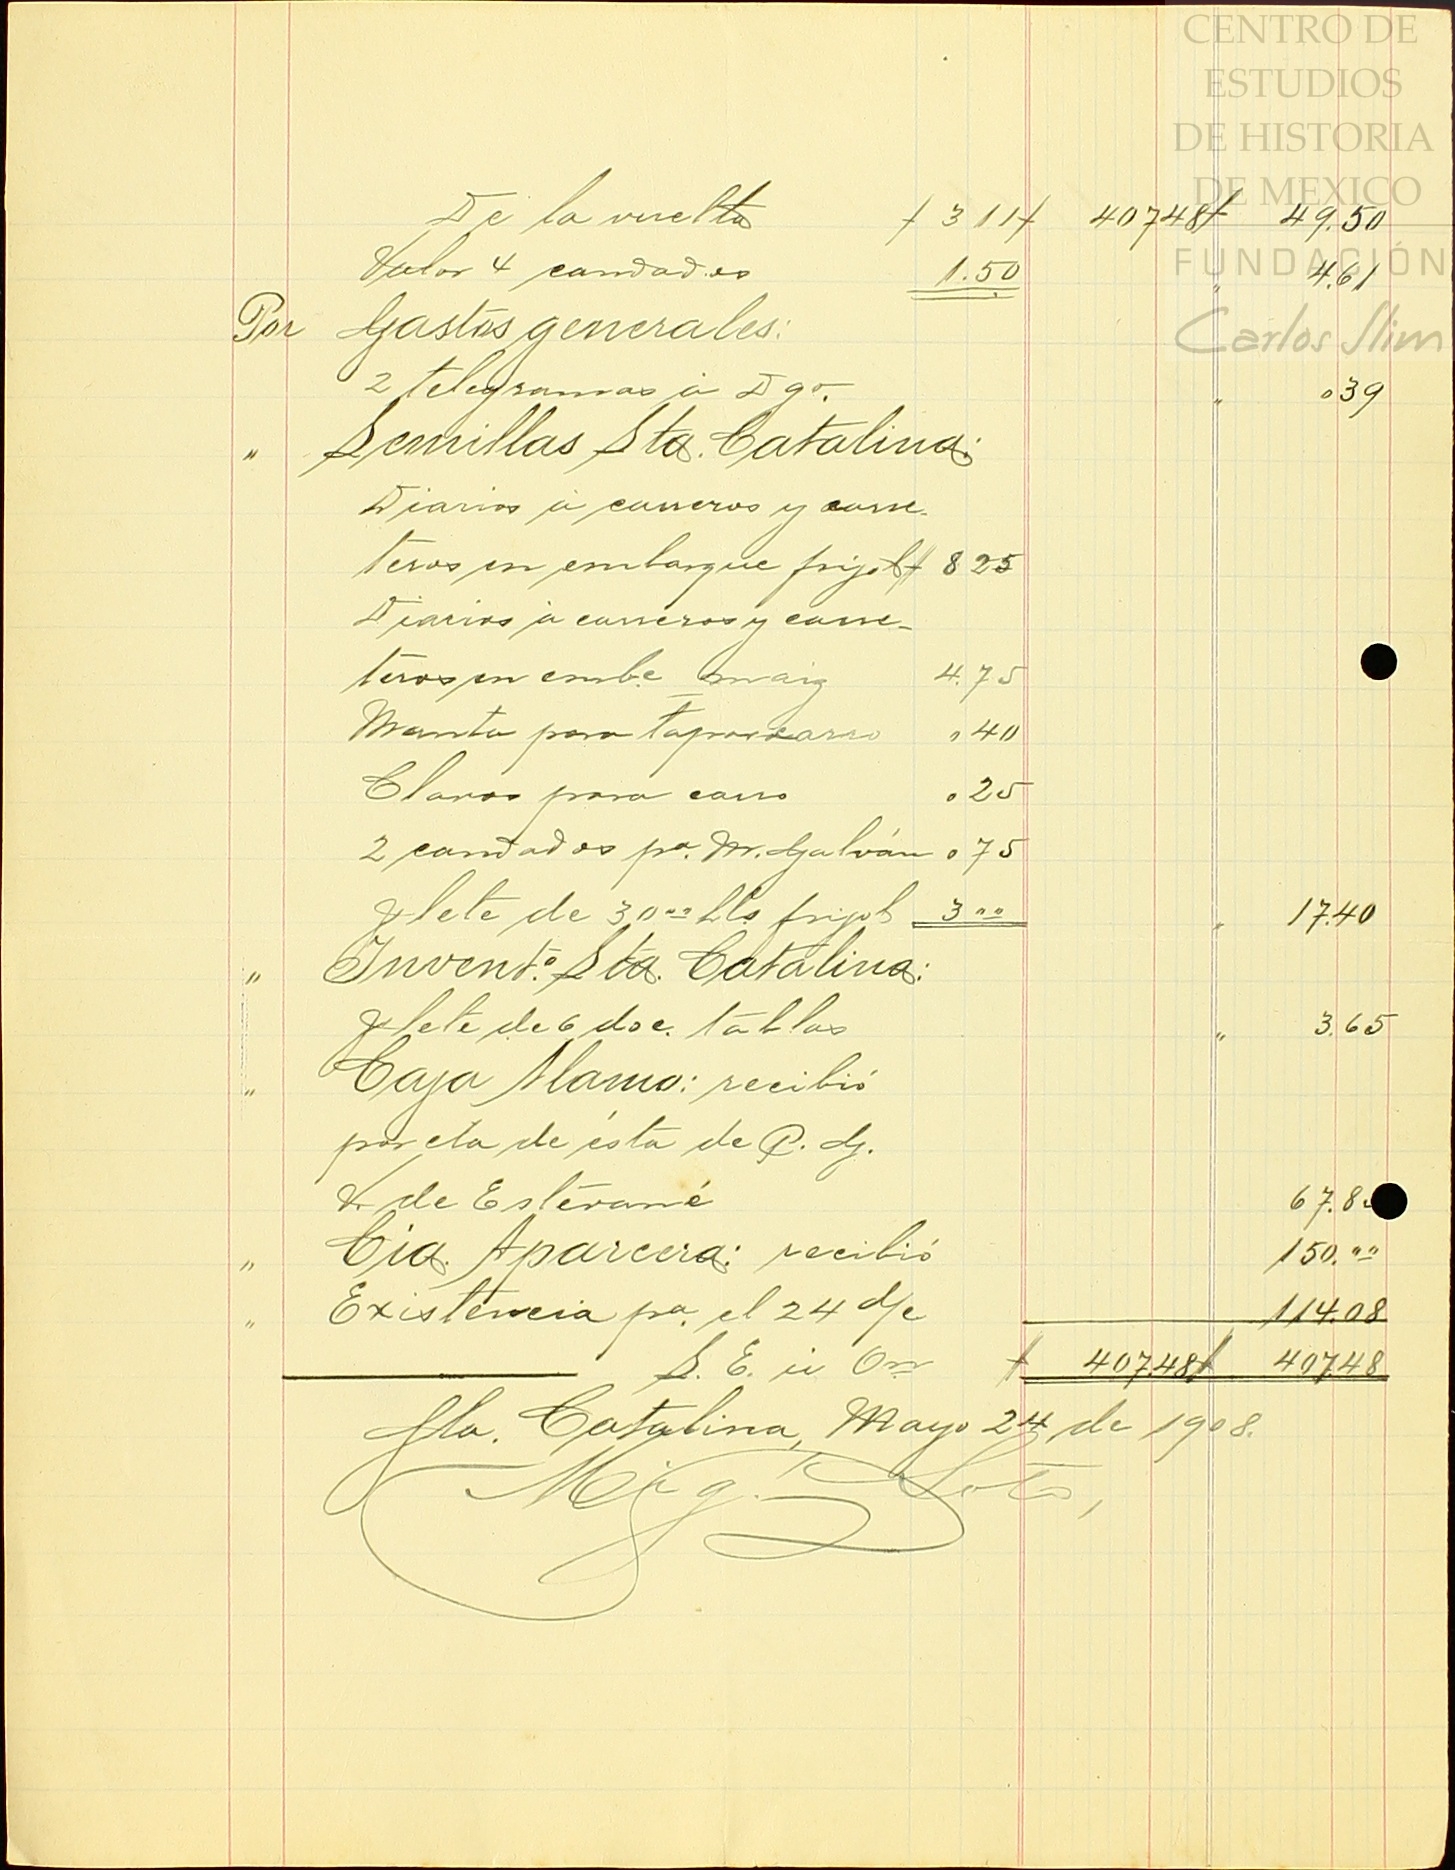 CENTRO DE
ESTUDIOS
DE HISTORIA
DE MEXICO
FUNDACIÓN
Carlos Slim
De la vuelta $ 3 11 $ 407.48 $ 49.50
Valor 4 candados 1.50 " 4.61
Por Gastos generales:
2 telegramas á Dgo. " 0 39
" Semillas Sta. Catalina:
Diarios á carreros y carre-
teros en embarque frijol $ 8 25
Diarios á carreros y carre-
teros en embe maiz 4.75
Manta para tapar carro 0 40
Clavos para carro 0 25
2 candados pa. M. Galván 0 75
Flete de 30 "" Hls frijol 3 "" " 17.40
" Invento. Sta. Catalina:
Flete de 6 doc. tablas " 3.65
" Caja Alamo: recibió
por cta de ésta de P. G.
V. de Estévané 67.8
" Cia. Aparcera: recibió 150. ""
" Existencia pa. el 24 d/c 114.08
S. E. ú On $ 407.48 $ 407.48
Sta. Catalina, Mayo 24 de 1908.
Mig. Soto,